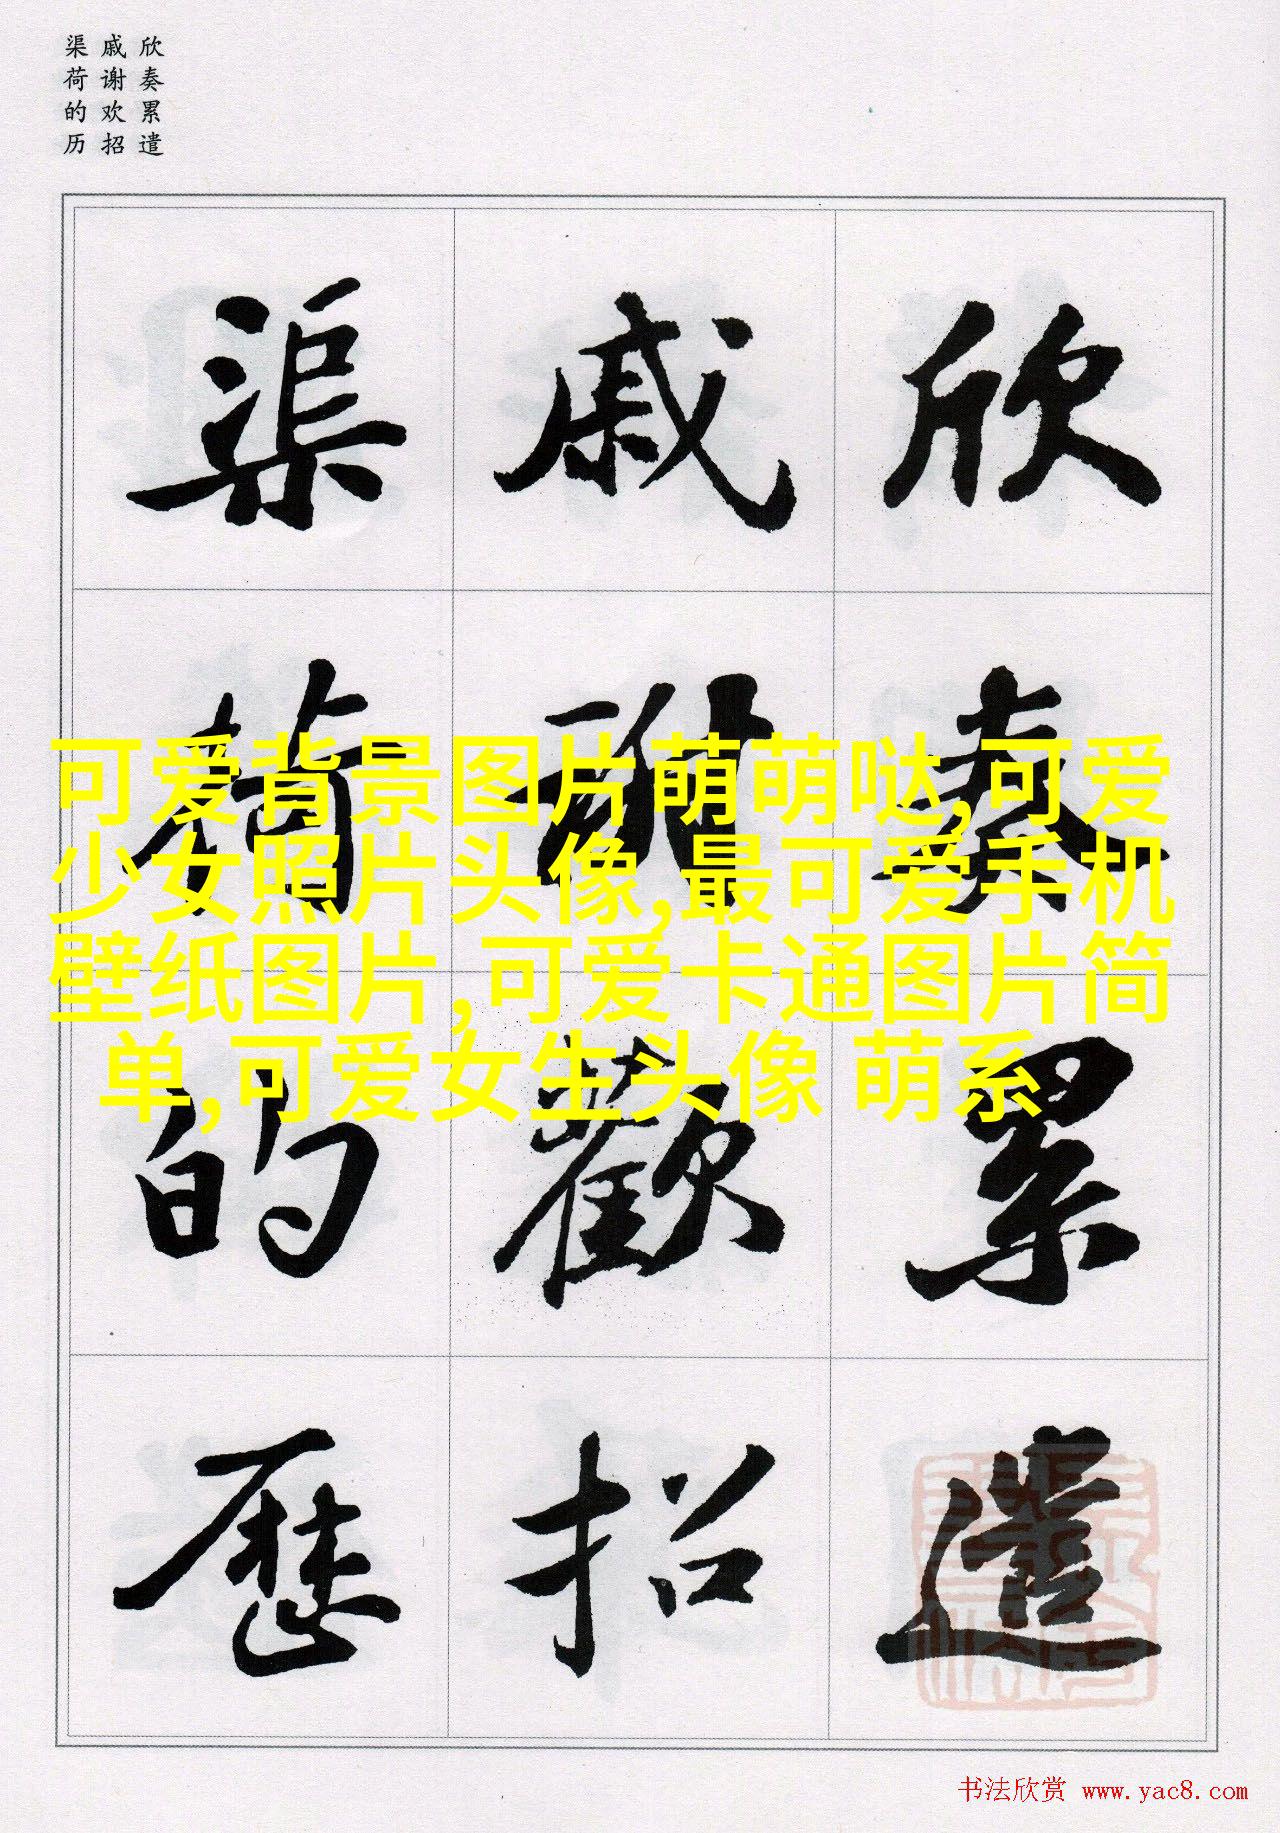 欣奏累遣
戚谢欢招
渠荷的历
欣奏累遣
戚謝歡招
渠荷的歷
可爱背景图片萌萌哒,可爱
少女照片头像,最可爱手机
壁纸图片,可爱卡通图片简
单,可爱女生头像 萌系
书法欣赏 www.yac8.com